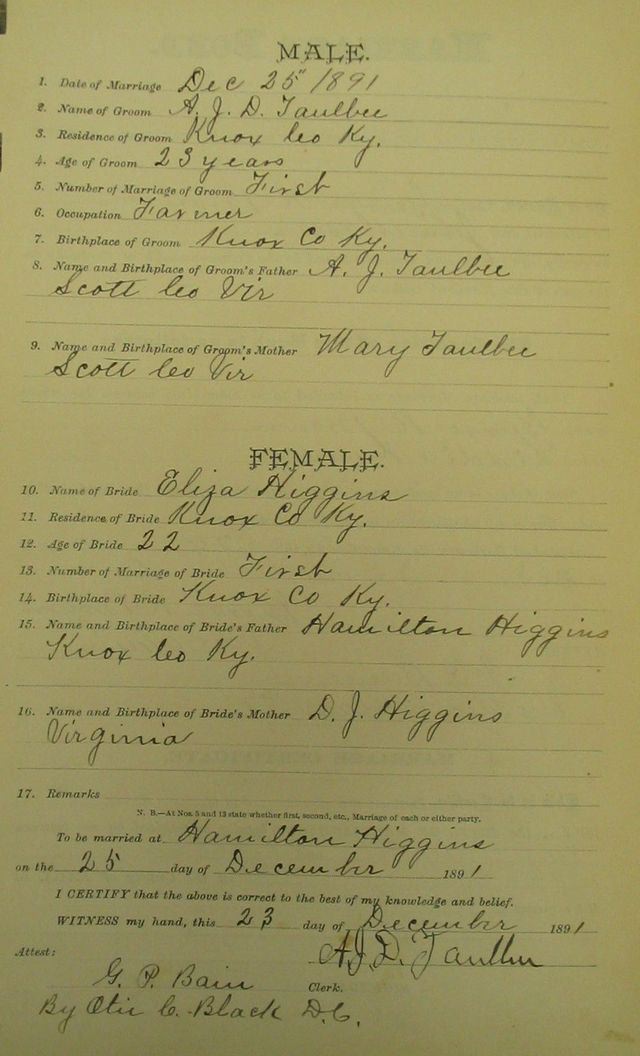 MALE.
1. Date of Marriage Dec 25" 1891
2. Name of Groom A. J. D. Taulbee
3. Residence of Groom Knox Co Ky.
4. Age of Groom 23 years
5. Number of Marriage of Groom First
6. Occupation Farmer
7. Birthplace of Groom Knox Co Ky.
8. Name and Birthplace of Groom's Father A. J. Taulbee
Scott Co Vir
9. Name and Birthplace of Groom's Mother Mary Taulbee
Scott Co Vir
FEMALE.
10. Name of Bride Eliza Higgins
11. Residence of Bride Knox Co Ky.
12. Age of Bride 22
13. Number of Marriage of Bride First
14. Birthplace of Bride Knox Co Ky.
15. Name and Birthplace of Bride's Father Hamilton Higgins
Knox Co Ky.
16. Name and Birthplace of Bride's Mother D. J. Higgins
Virginia
17. Remarks
N. B.—At Nos. 5 and 13 state whether first, second, etc., Marriage of each or either party.
To be married at Hamilton Higgins
on the 25 day of December 1891
I CERTIFY that the above is correct to the best of my knowledge and belief.
WITNESS my hand, this 23 day of December 1891
Attest: A. J. D. Taulbee
G. P. Bain Clerk.
By Otis C. Black D.C.